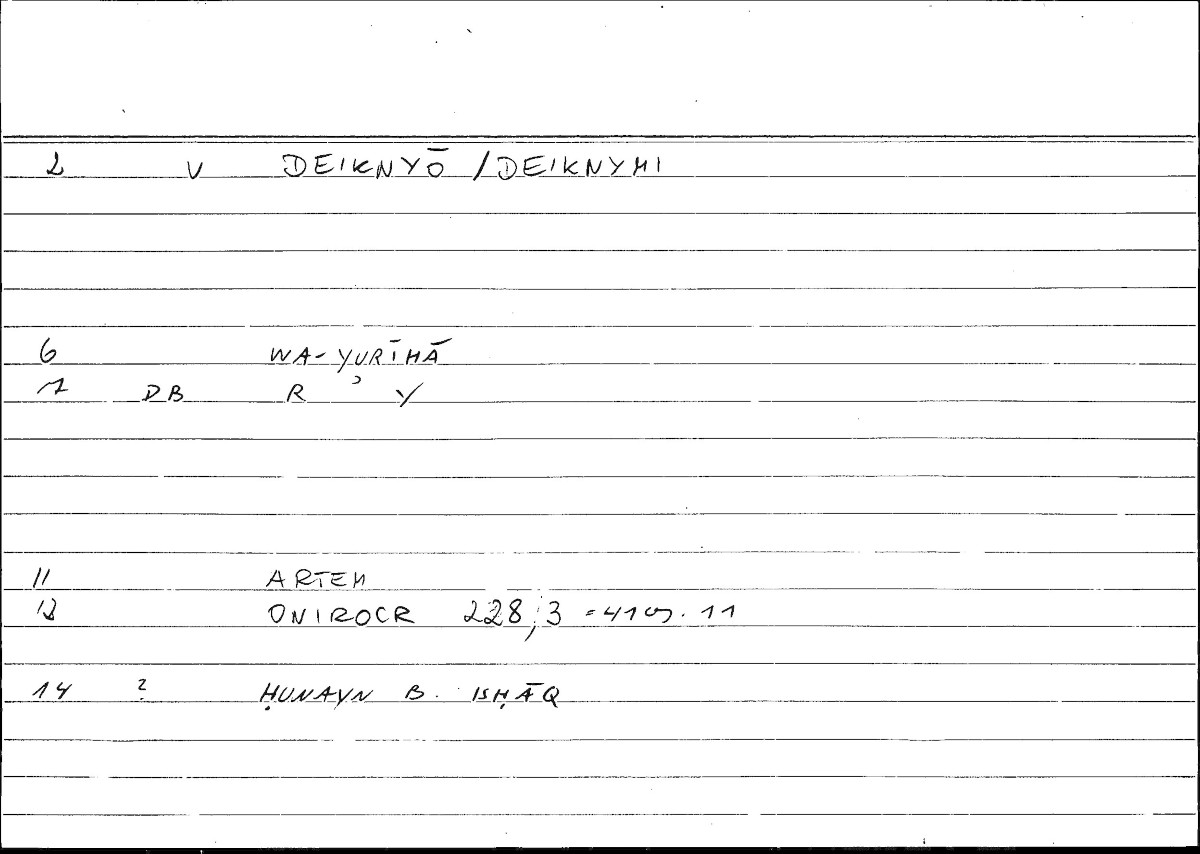 2 V DEIKNYŌ / DEIKNYMI
6 WA-YURĪHĀ
7 DB R ʾ Y
11 ARTEM
12 ONIROCR 228,3 =
14 ? ḤUNAYN B. ISḤĀQ